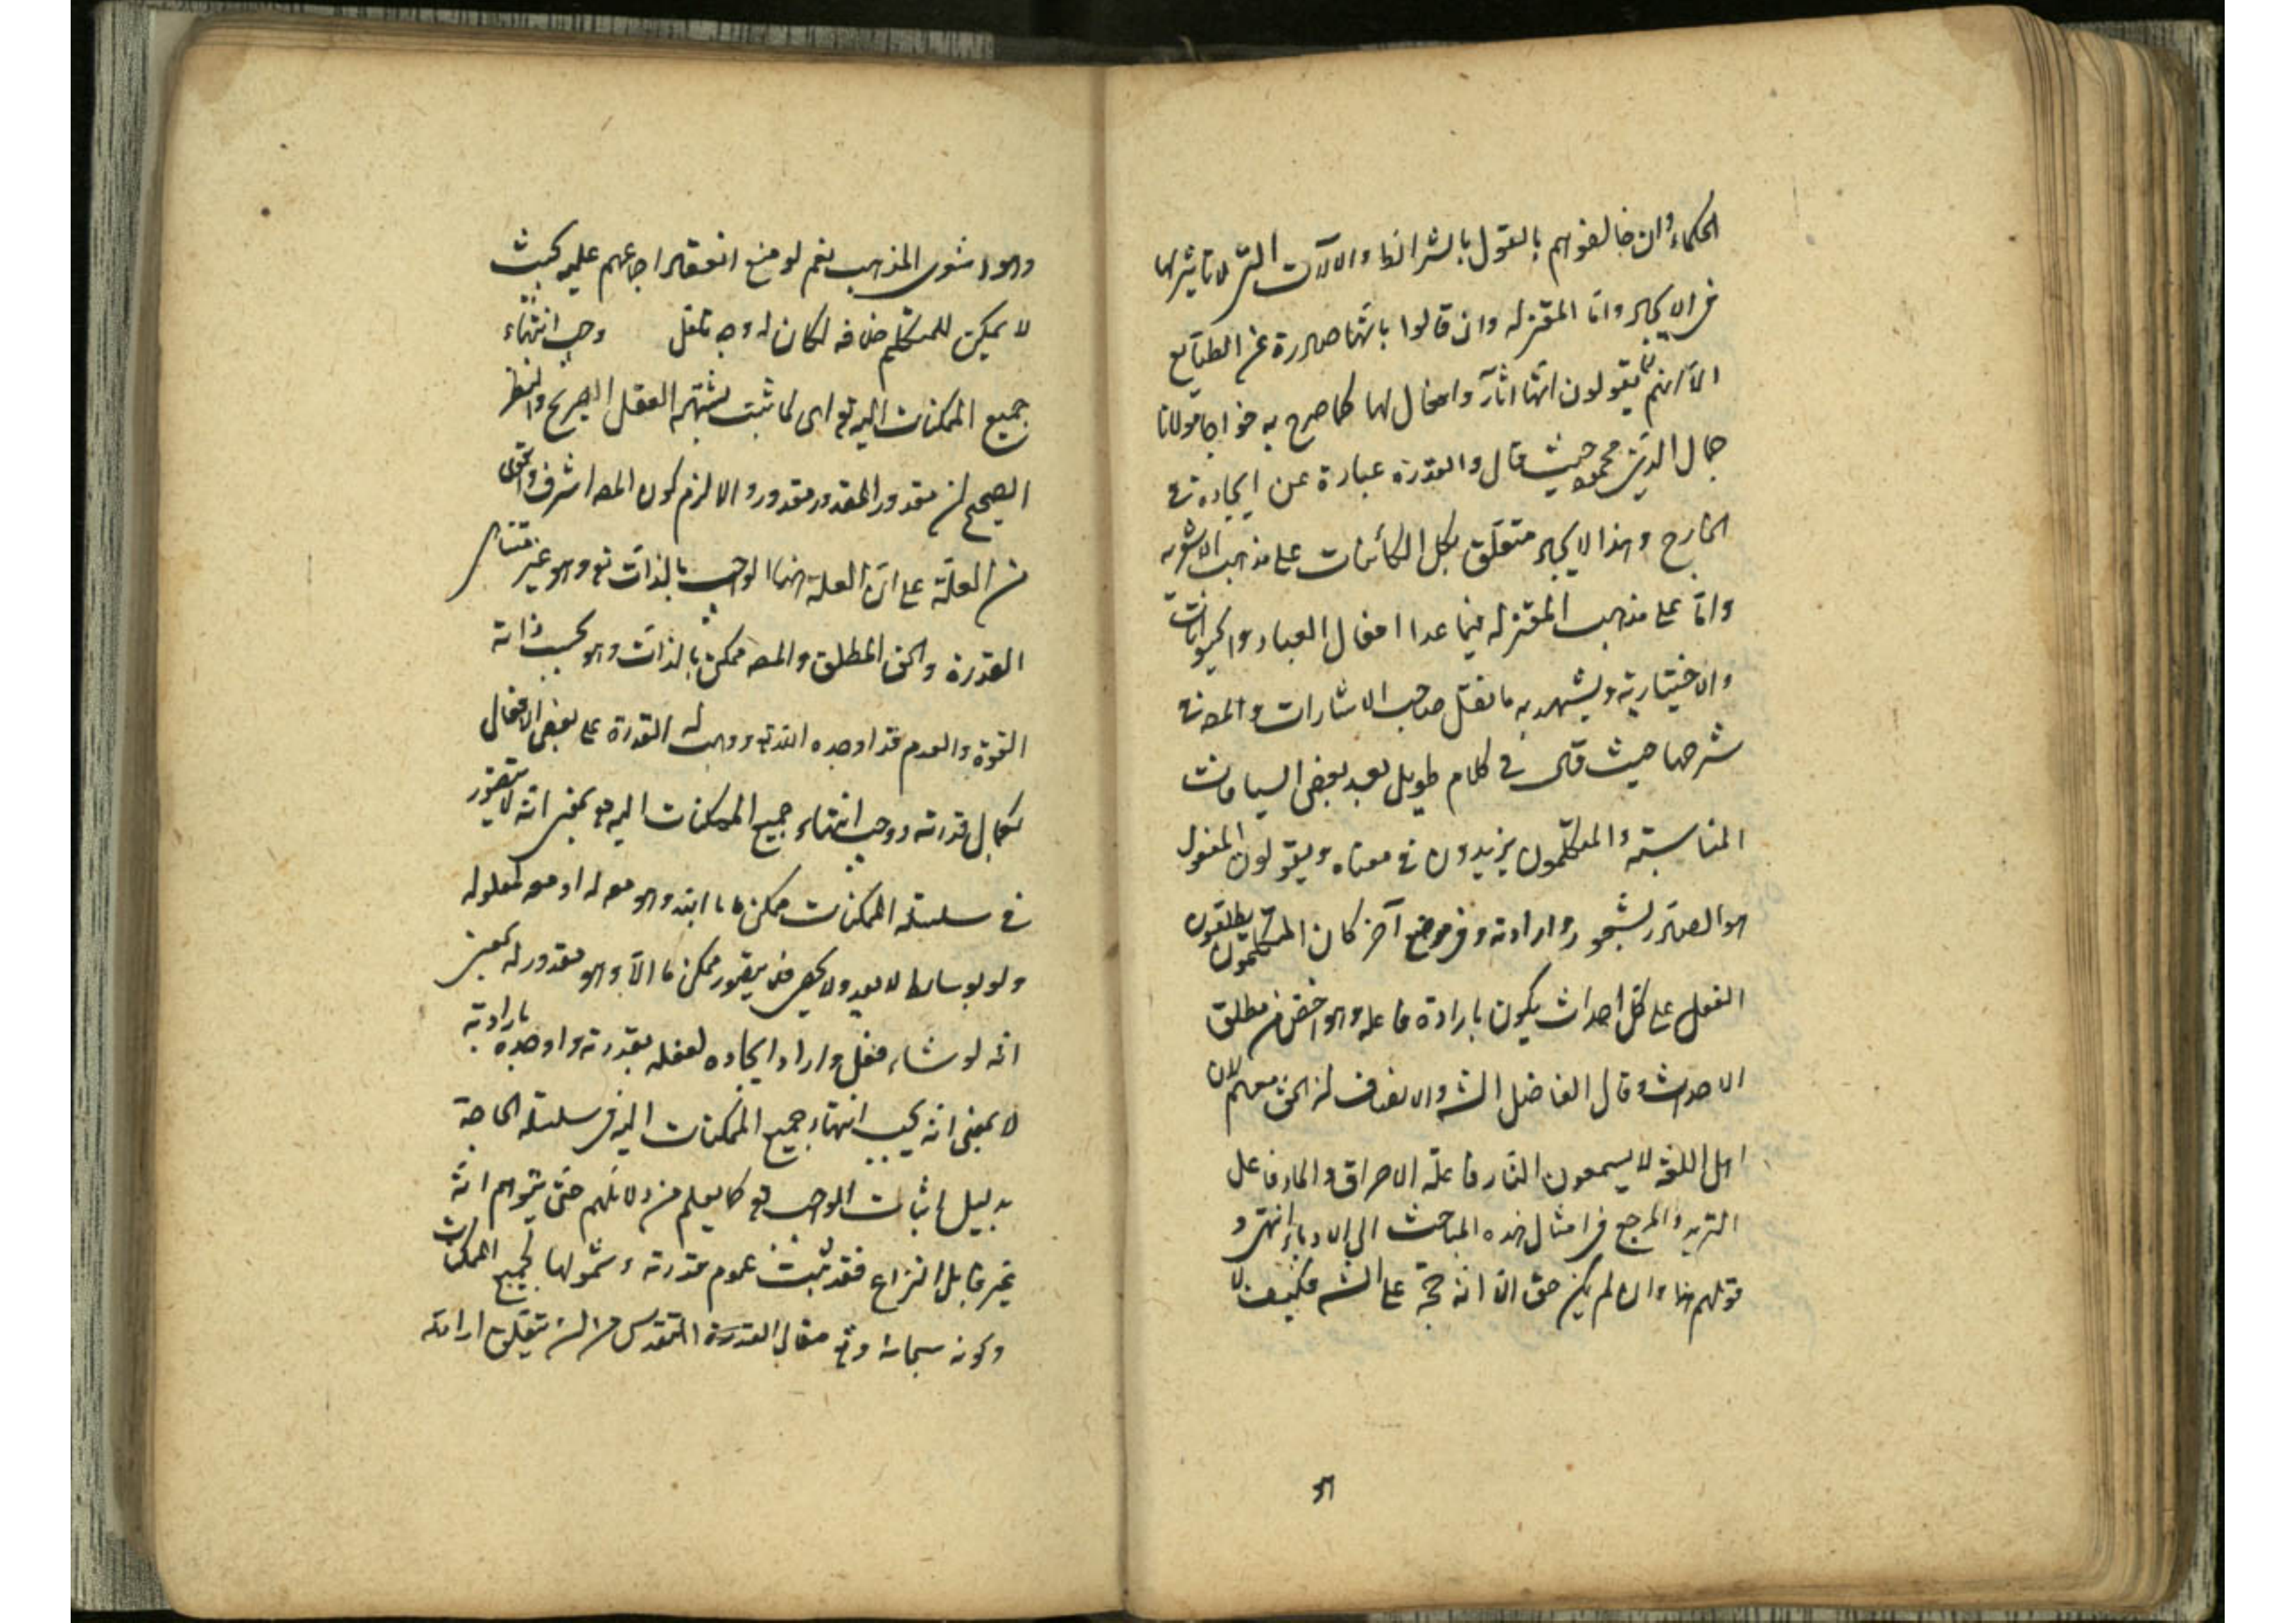 الحكماء وان خالفوهم بالقول بالشرائط والآلات التى لا تأثير لها
فى الايجاد وامّا المعتزله وان قالوا بانّها صادرة عن الطبايع
الّا انهم لا يقولون انّها اثار وافعال لها كما صرح به خواجا مولانا
جمال الدّين محمود حيث قال والقدرة عبارة عن ايجاده فى
الخارج وهذا الايجاد متعلّق بكل الكائنات على مذهب الاشعريه
وامّا على مذهب المعتزله فيما عدا افعال العباد والحيوانات
والاختيارية ويشهد به ما نقل صاحب الاشارات والمص فى
شرحها حيث قال فى كلام طويل بعد بعض السياقات
المناسبة والمتكلّمون يزيدون فى معناه ويقولون الفعل
هو الصادر بشعور وارادته وفى موضع آخر كان المتكلمون يطلقون
الفعل على كل احداث يكون بارادة فاعله وهو اخصّ من مطلق
الاحداث وقال الفاضل الشه والانصاف ان الحقّ معهم لان
اهل اللغة لا يسمعون النار فاعلة الاحراق والماء فاعل
التبريد والمرجع فى امثال هذه المباحث الى الادباء انتهى و
قولهم هنا وان لم يكن حق الّا انه حجّة على الشه فكيف لا
وهو
وهو اشعرى المذهب نعم لو منع انعقاد اجماعهم عليه بحيث
لا يمكن للمتكلم خلافه لكان له وجه تامل وجب انتهاء
جميع الممكنات اليه تعالى لما ثبت بشهادة العقل الصريح والنظر
الصحيح ان مقدور المقدور مقدور والا لزم كون المعه اشرف واقوى
من العلّة على انّ العلة هنا الواجب بالذات تع وهو غير متناهى
القدرة والحق المطلق والمعه ممكن بالذات وهو بحسب ذاته
القوة والعدم قد اوجده الله تع ووهب له القدرة على بعض الافعال
بكمال قدرته ووجب انتهاء جميع الممكنات اليه تع بمعنى انّه لا يتصور
فى سلسلة الممكنات ممكن ما ابتد وهو معه له او معه لمعلوله
ولو بوسائط لا يعد ولا يحصى فلا يتصور ممكن ما الّا وهو مقدور له بمعنى
انه لو شاء فعل واراد ايجاده لفعله بقدرته واوجده بارادته
لا بمعنى انه يجب انتهاء جميع الممكنات اليه فى سلسلة الحاجة
بدليل اثبات الواجب تع كما يعلم من دلائلهم حتى يتوهم انّه
غير قابل النزاع فقد ثبتت عموم قدرته وشمولها لجميع الممكنات
وكونه سبحانه وتع متعالى القدرة المتقدس من ان يتعلق ارادته